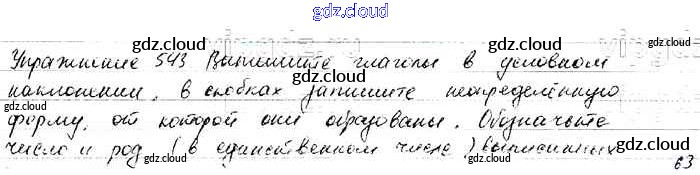 gdz.cloud
Упражнение 543 Выпишите глаголы в условном
наклонении, в скобках запишите неопределённую
форму, от которой они образованы. Обозначьте
число и род (в единственном числе) выписанных
63
gdz.cloud gdz.cloud gdz.cloud
gdz.cloud gdz.cloud gdz.cloud
gdz.cloud gdz.cloud gdz.cloud